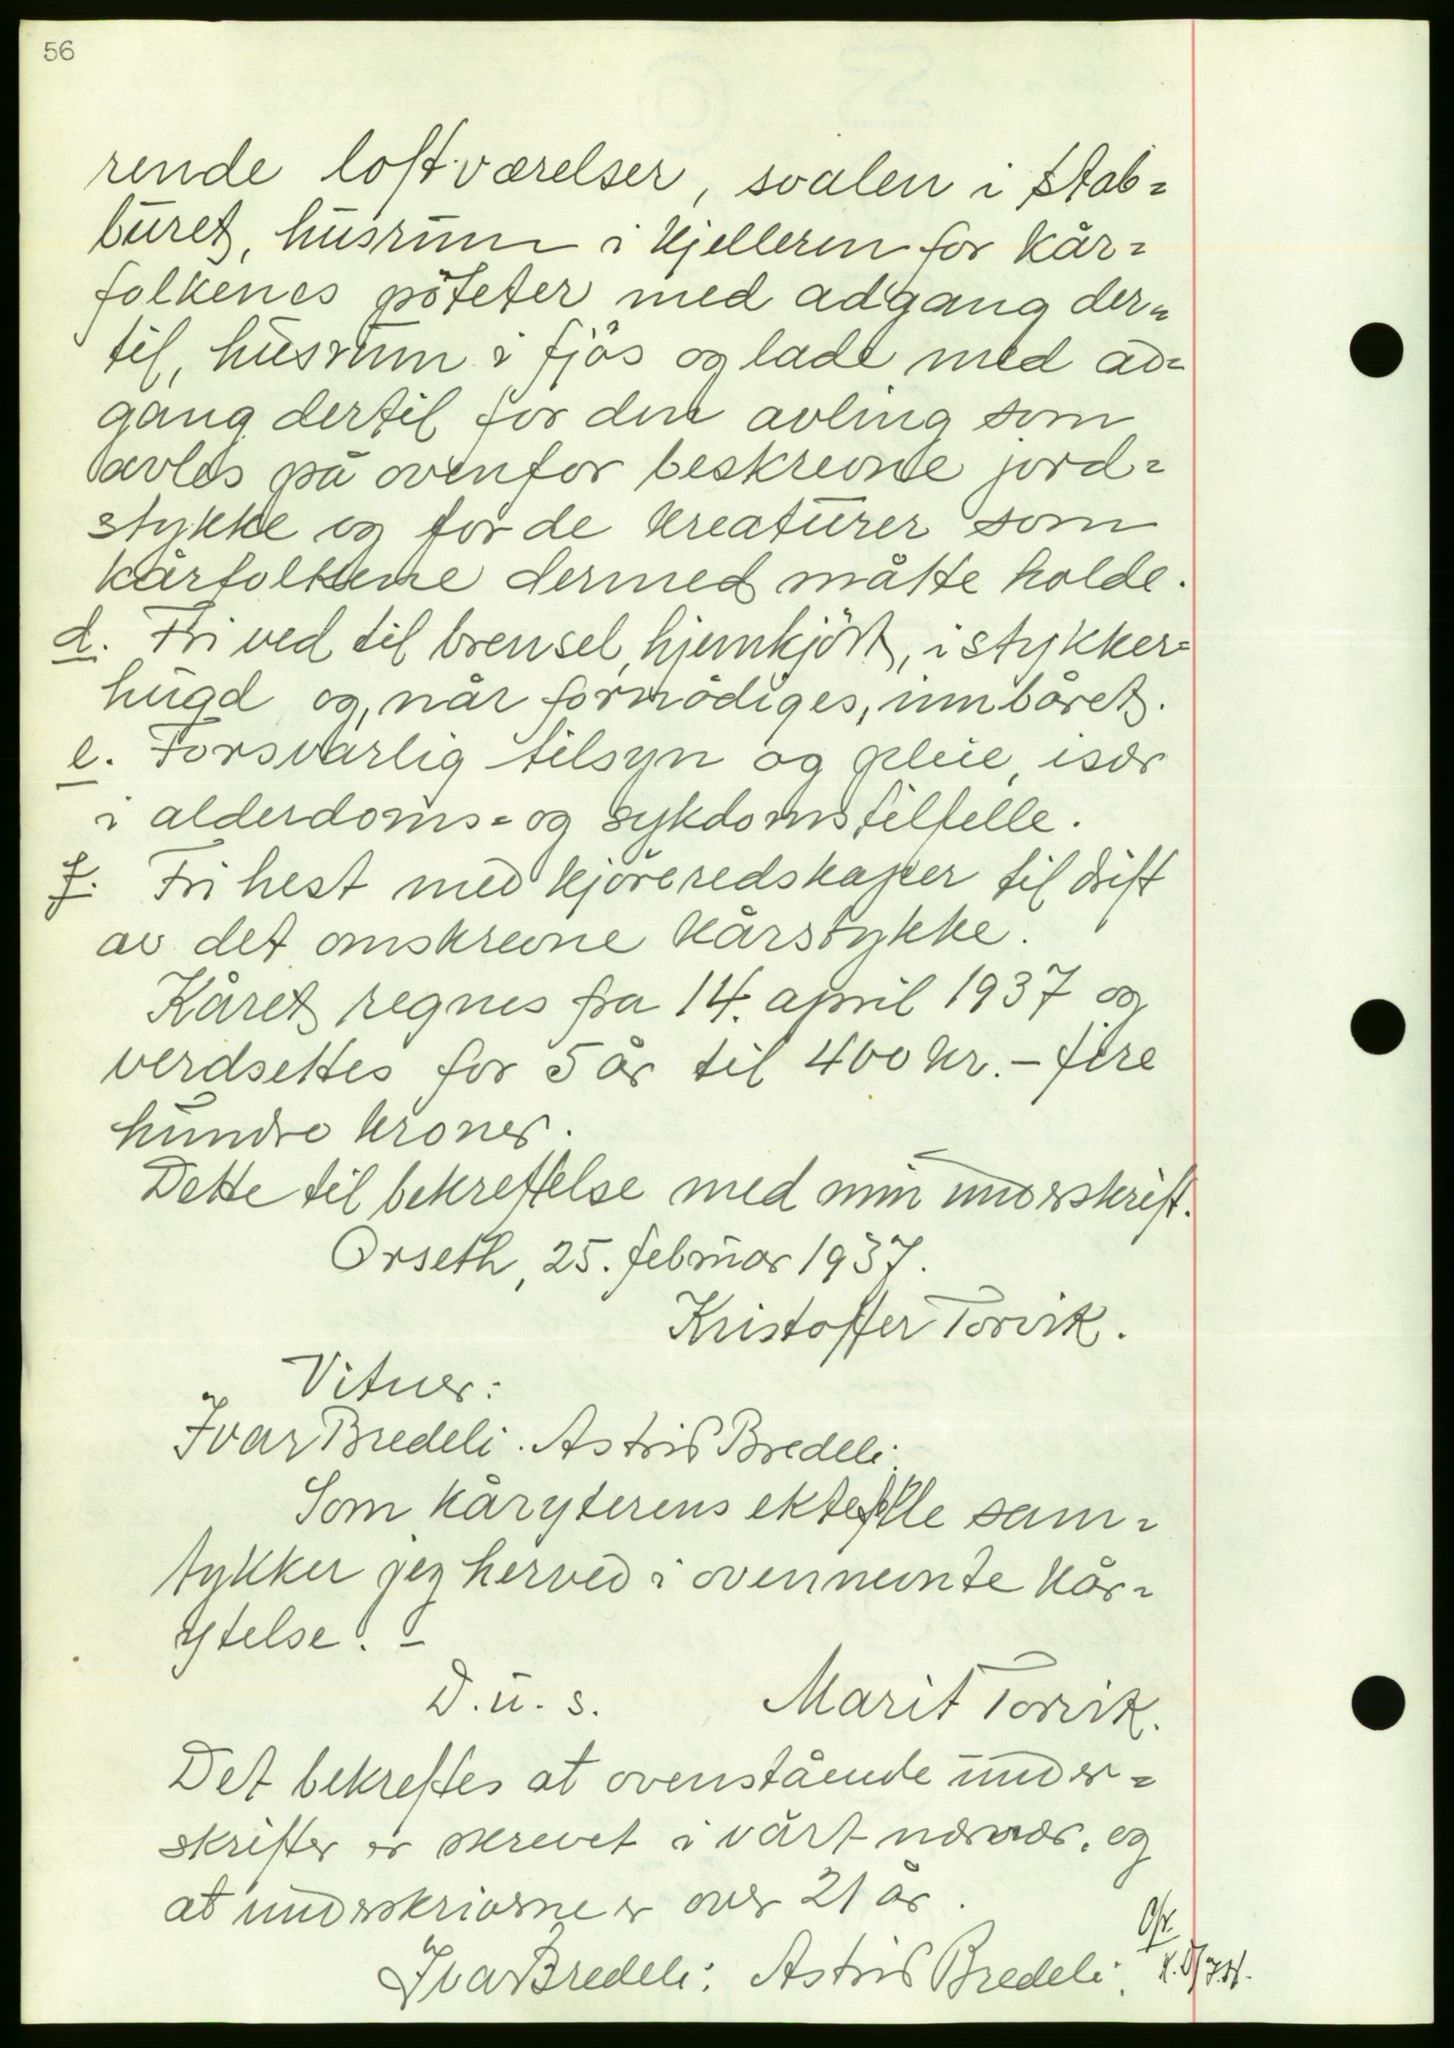 56
rende loftværelser, svalen i stab=
buret, husrum i kjelleren for kår=
folkenes poteter med adgang der=
til, husrum i fjøs og lade med ad=
gang dertil for den avling som
avles på ovenfor beskrevne jord=
stykke og for de kreaturer som
kårfolkene dermed måtte holde.
d. Fri ved til brensel, hjemkjørt, istykker=
hugd og, når fornødiges, innbåret.
e. Forsvarlig tilsyn og pleie, især
i alderdoms= og sykdomstilfelle.
f. Fri hest med kjøreredskaper til drift
av det omskrevne kårstykke.
Kåret regnes fra 14. april 1937 og
verdsettes for 5 år til 400 kr. – fire
hundre kroner.
Dette til bekreftelse med min underskrift.
Orseth, 25. februar 1937.
Kristoffer Torvik.
Vitner:
Ivar Bredeli. Astrid Bredeli.
Som kåryterens ektefelle sam=
tykker jeg herved i ovennevnte kår=
ytelse. –
D. u. s. Marit Torvik.
Det bekreftes at ovenstående under=
skrifter er skrevet i vårt nærvær, og
at underskriverne er over 21 år.
Ivar Bredeli. Astrid Bredeli.